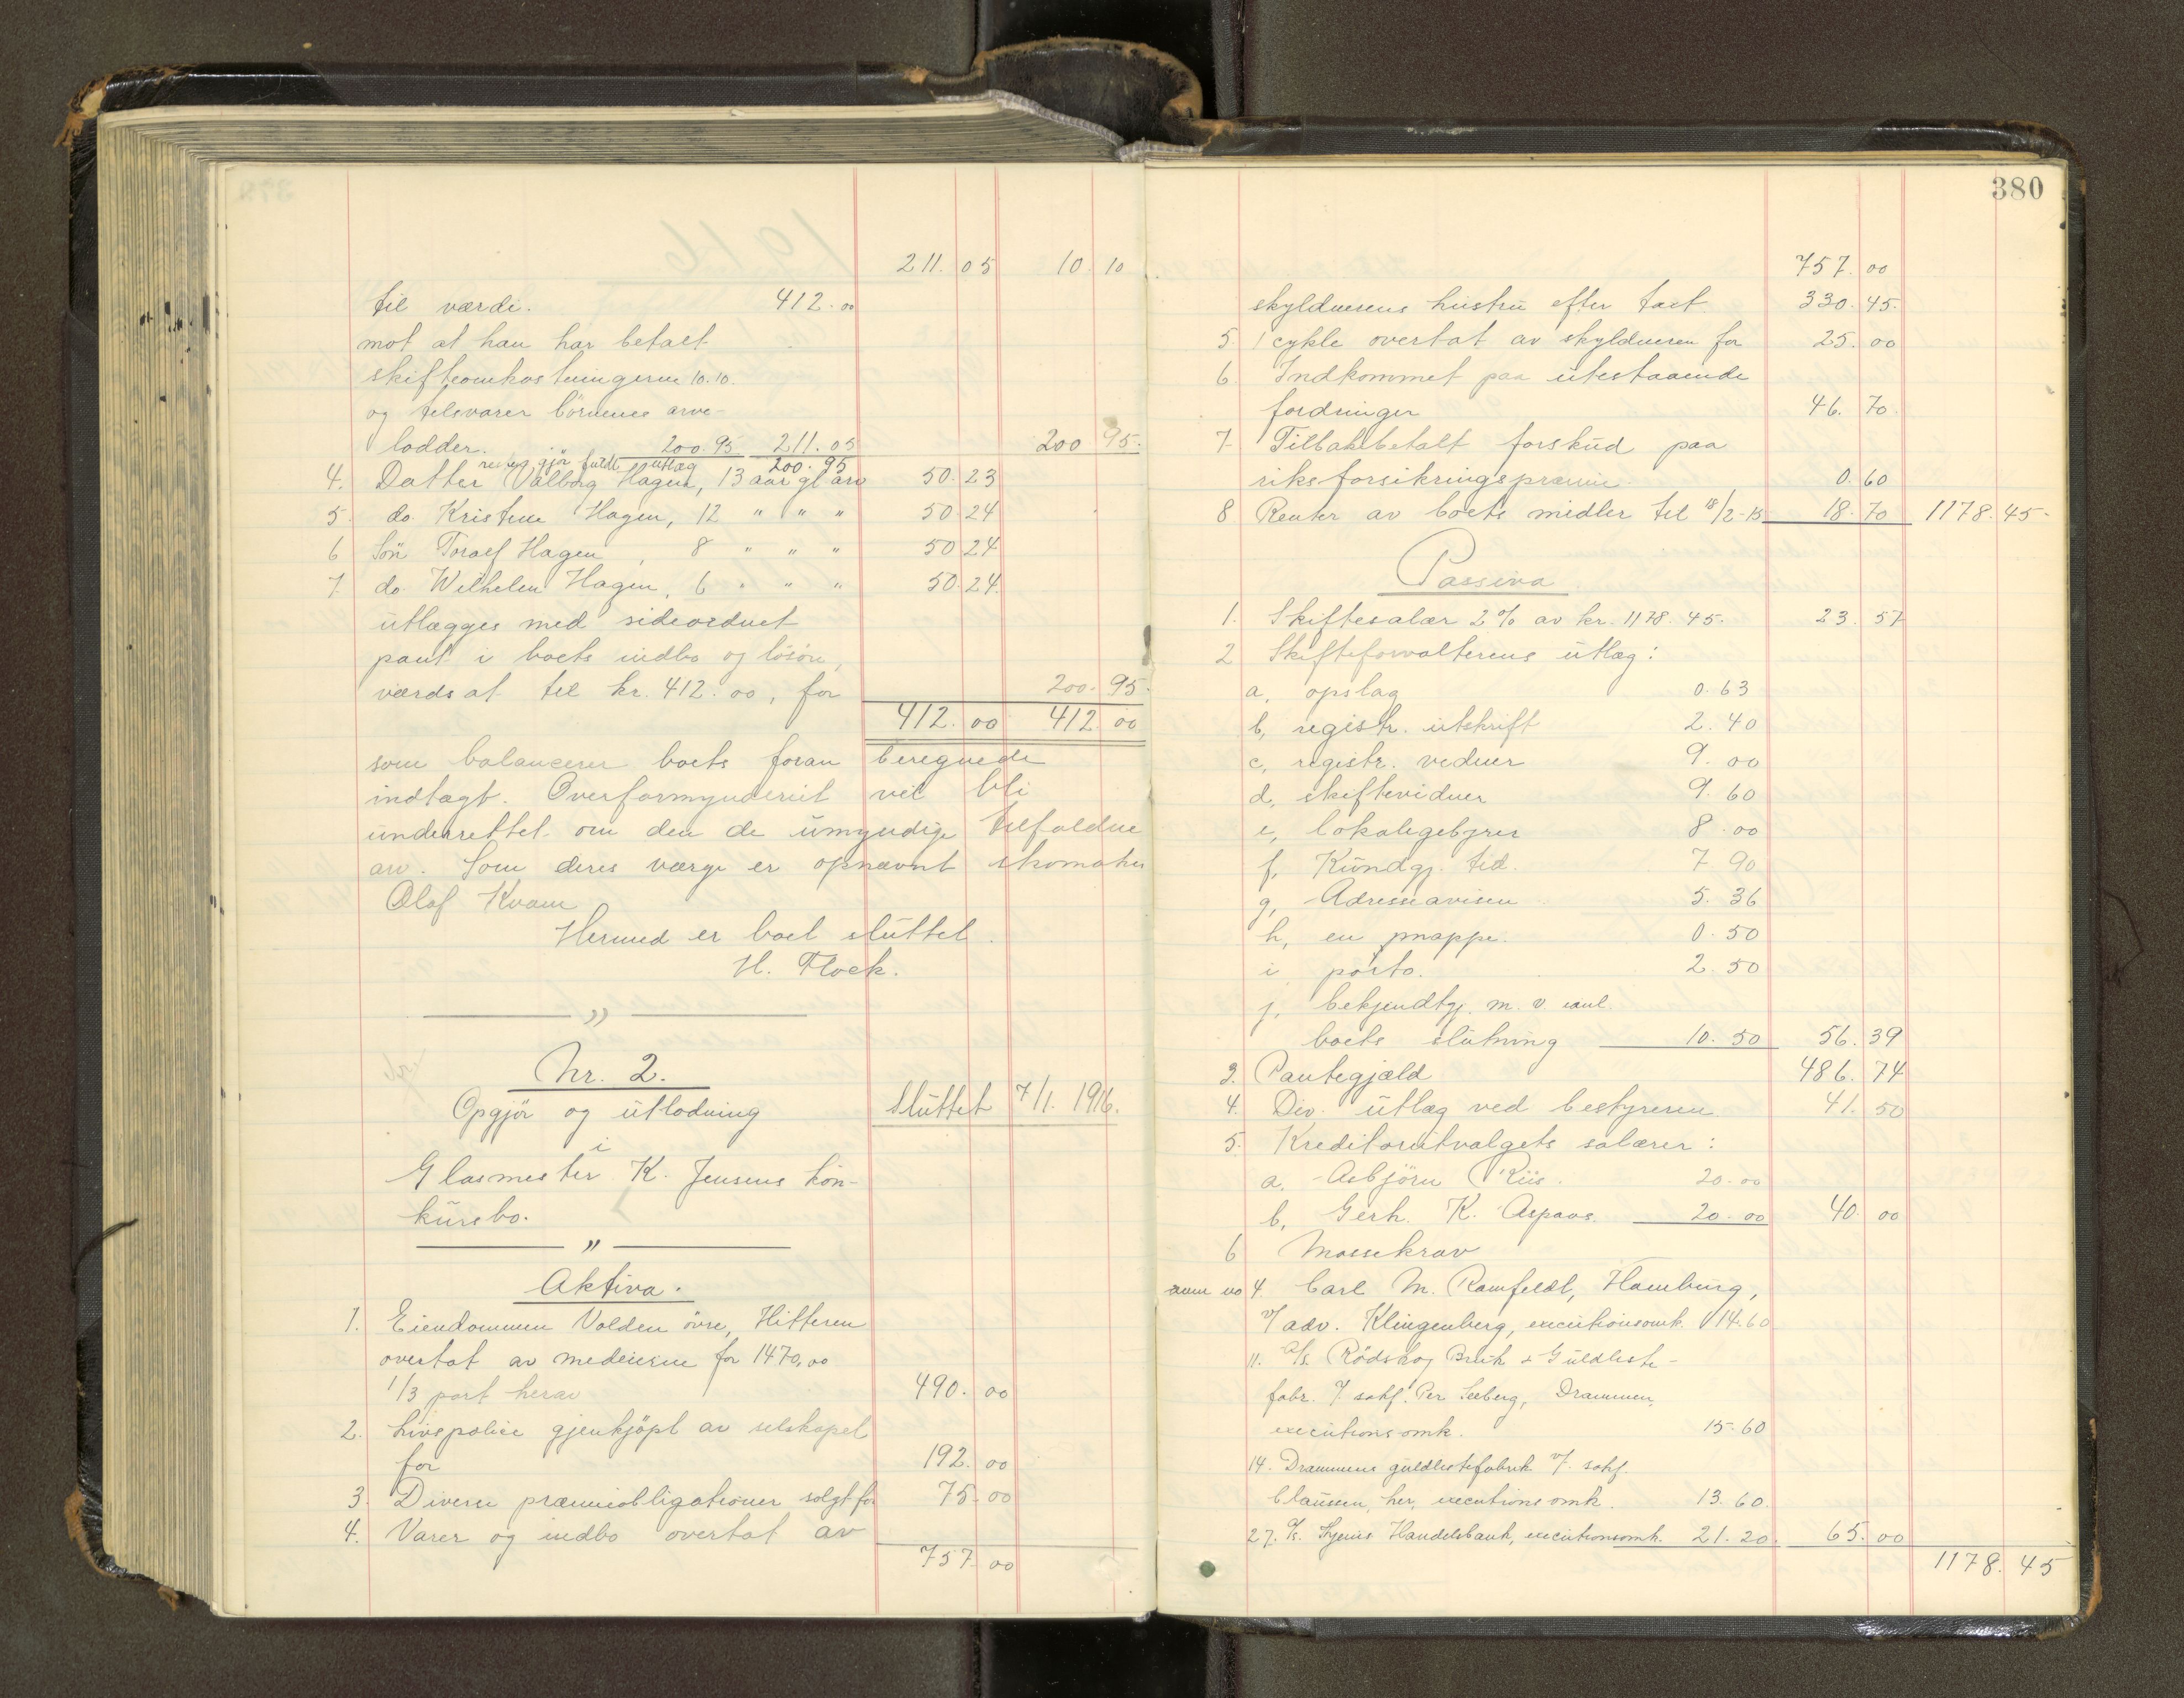 211. 05 10. 10
til værdi. 412. 00
mot at han har betalt
skifteomkostningerne 10.10.
og tilsvarer börnenes arve-
lodder. 200. 95 211. 05 200 95.
resten gjör fuldt utlæg 200. 95
4. Datter Valborg Hagen, 13 aar gl arv 50. 23
5. do. Kristine Hagen, 12 " " " 50 24
6 Sön Toralf Hagen, 8 " " " 50 24
7. do. Wilhelm Hagen, 6 " " " 50. 24.
utlægges med sideordnet
pant i boets indbo og lösöre,
værdsat til kr. 412. 00, for 200. 95.
412. 00 412. 00
som balancerer boets foran beregnede
indtægt. Overformynderiet vil bli
underrettet om den de umyndige tilfaldne
arv. Som deres værge er opnævnt skomaker
Olaf Kvam
Hermed er boet sluttet.
H. Flock.
"
Nr. 2.
Opgjör og utlodning Sluttet 7/1. 1916.
i
Glasmester K. Jensens kon-
kursbo.
"
Aktiva.
1. Eiendommen Volden övre, Hitteren
overtat av medeierne for 1470,00
1/3 part herav 490. 00
2. Livspolice gjenkjöpt av selskapet
for 192. 00
3. Diverse præmieobligationer solgt for 75. 00
4. Varer og indbo overtat av
757. 00
380
757. 00
skyldnerens hustru efter taxt 330. 45.
5. 1 cykle overtat av skyldneren for 25. 00
6. Indkommet paa utestaaende
fordringer 46. 70.
7. Tilbakebetalt forskud paa
riksforsikringspræmie. 0. 60
8 Renter av boets midler til 18/2-15 18. 70 1178. 45-
Passiva
1. Skiftesalær 2 % av kr. 1178. 45. 23. 57
2 Skifteforvalterens utlæg:
a, opslag 0. 63
b, registr. utskrift 2. 40
c, registr. vidner 9. 00
d, skiftevidner 9. 60
e, lokalegebyrer 8. 00
f, Kundgj. tid. 7 90
g, Adresseavisen 5. 36
h, en mappe. 0. 50
i porto. 2. 50
j, bekjendtgj. m. v. anl.
boets slutning 10. 50 56. 39
3. Pantegjæld 486. 74
4. Div. utlæg ved bestyreren 41. 50
5. Kreditorutvalgets salærer:
a. Asbjörn Riis. 20. 00
b, Gerh. K. Aspaas. 20. 00 40. 00
6 Massekrav
anm no 4. Carl M. Ramfeldt, Hamburg,
v/ adv. Klingenberg, executionsomk. 14. 60
11. A/s. Rödskog Bruk & Guldliste-
fabr. v/ sakf. Per Seeberg, Drammen,
executionsomk. 15. 60
14. Drammens guldlistefabrik v/. sakf.
Claussen, her, executionsomk. 13. 60.
27. A/s. Kjeries Handelsbank, executionsomk. 21. 20. 65. 00
1178. 45